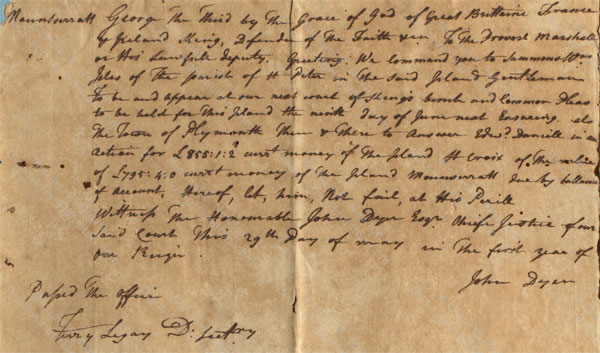 Mounsserratt George the Third by The Grace of God of Great Brittaine France
& Ireland King, Defender of The Faith &c. To The Provost Marshall
or His Lawfull deputy. Greeting. We command you to Summons Wm
Iles of The parish of St Peter in The Said Island Gentleman
To be and appear at our next court of Kheng's bench and Common Pleas
to be held for This Island the ninth day of June next Ensueing at
The Town of Plymonth Then & There to Answer Edwd. Daniell in an
action for £855:1:2 currt money of The Island St Croix of The value
of £795:4:0 currt money of The Island Mounsserratt due by ballance
of Account, Hereof, let, him, Not fail, at His Perill
Wittness The Honourable John Dyer Esqr. Chife Jistice of our
Said Court This 29th Day of may in The first year of
our Reign.
John Dyer
Pased The office
Terry Legay D: Secttry